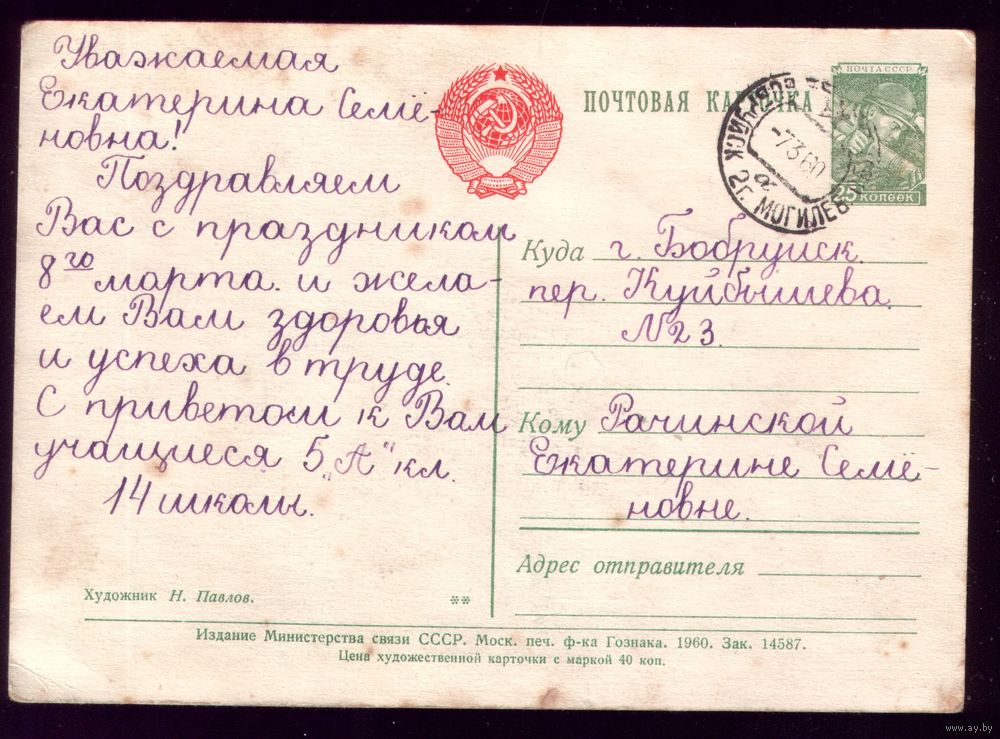 Уважаемая
Екатерина Семё-
новна!
Поздравляем
Вас с праздником
8го марта и жела-
ем Вам здоровья
и успеха в труде.
С приветом к Вам
учащиеся 5 „А" кл.
14 школы.
Художник Н. Павлов.
**
ПОЧТОВАЯ КАРТОЧКА
ПОЧТА СССР
25 КОПЕЕК
БОБРУЙСК 2 Г. МОГИЛЕВ
-7 3 60
а
Куда г. Бобруйск.
пер. Куйбышева
N 23.
Кому Рачинской
Екатерине Семё-
новне.
Адрес отправителя
Издание Министерства связи СССР. Моск. печ. ф-ка Гознака. 1960. Зак. 14587.
Цена художественной карточки с маркой 40 коп.
www.ay.by